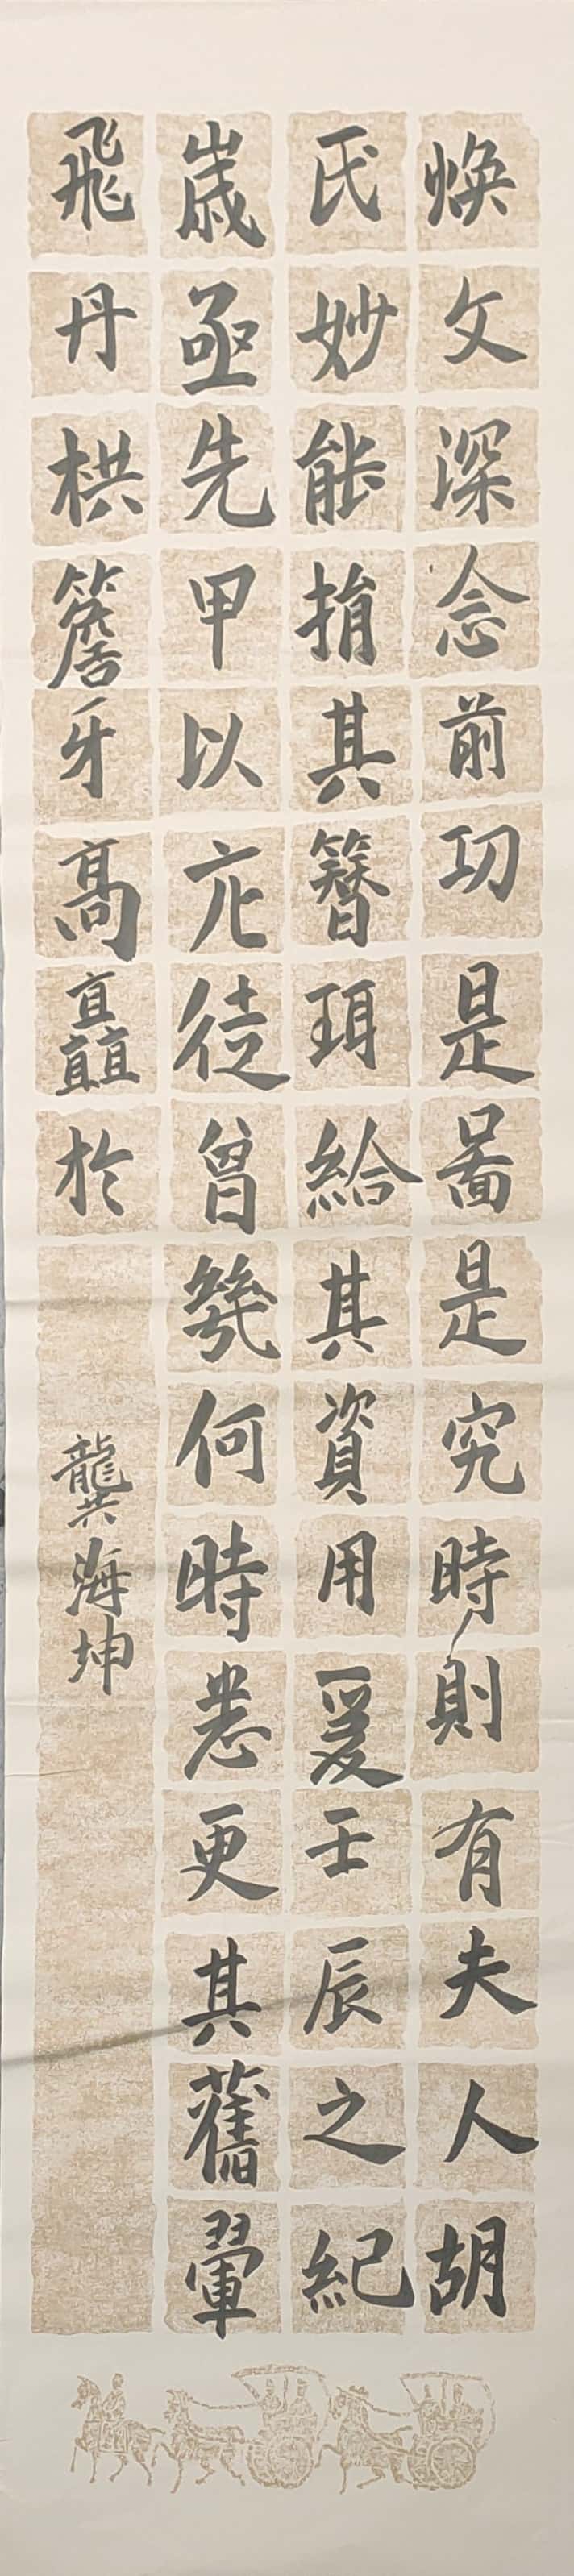 煥文深念前功是啚是究時則有夫人胡
氏妙能捐其簪珥給其資用爰壬辰之紀
歲亟先甲以庀徒曾幾何時悉更其舊翬
飛丹栱簷牙高矗於
龔海坤